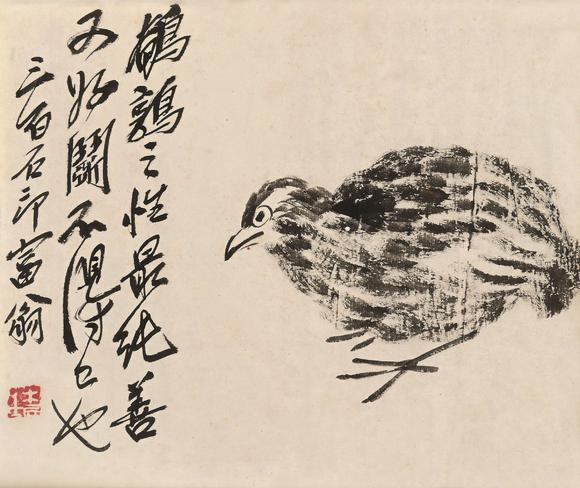 鵪鶉之性最純善
又好鬭不得已也
三百石印富翁